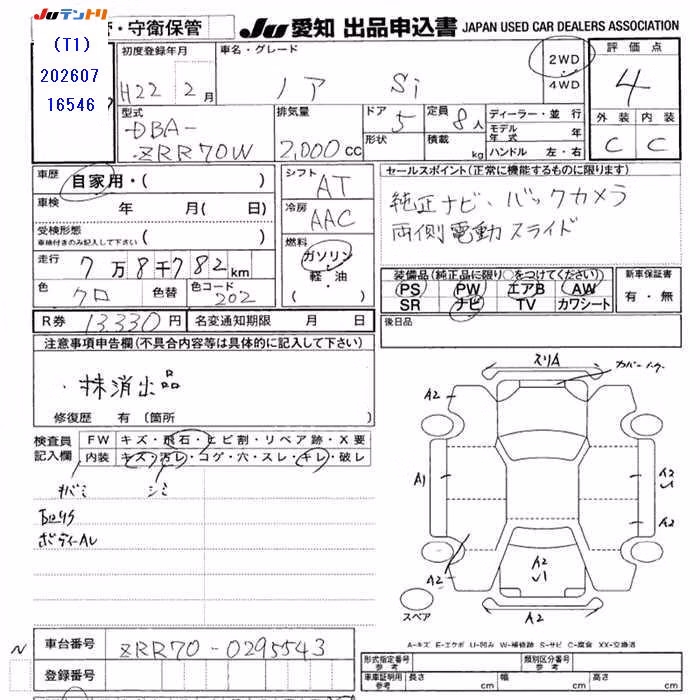 JUテントリ
・守衛保管
JU 愛知 出品申込書 JAPAN USED CAR DEALERS ASSOCIATION
(T1)
202607
16546
初度登録年月
H22 2月
車名・グレード
ノア Si
2WD
・
4WD
評価点
4
外装 内装
C C
型式
-DBA-
-ZRR70W
排気量
2,000cc
ドア
5
形状
定員
8人
積載
kg
ディーラー・並行
モデル年式 年
ハンドル 左・右
車歴
自家用・( )
車検 年 月( 日)
受検形態
車検付きのみ記入して下さい ( )
走行 7万8千782km
色 クロ 色替 色コード 202
シフト
AT
冷房
AAC
燃料
ガソリン
・
軽・油
セールスポイント(正常に機能するものに限ります)
純正ナビ・バックカメラ
両側電動スライド
装備品(純正品に限り○をつけてください)
PS PW エアB AW
SR ナビ TV カワシート
新車保証書
有・無
R券 13330円 名変通知期限 月 日
後日品
注意事項申告欄(不具合内容等は具体的に記入して下さい)
・抹消出品
修復歴 有 〔箇所
検査員
記入欄
FW キズ・飛石・ヒビ割・リペア跡・X要
内装 キズ・汚レ・コゲ・穴・スレ・キレ・破レ
シミ
スリA
A2
A1
A2
A2
A2
A2
A2
スペア
A-キズ E-エクボ U-凹み W-補修跡 S-サビ C-腐食 XX-交換済
N
車台番号 ZRR70-0295543
登録番号
形式指定番号
参考
類別区分番号
参考
車庫証明用
参考
長さ cm 幅 cm 高さ cm